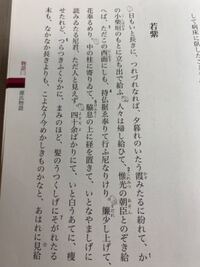 若紫
日もいと長きに、つれづれなれば、夕暮れのいたう霞みたるに紛れて、か
の小柴垣のもとに立ち出で給ふ。人々は帰し給ひて、惟光の朝臣とのぞき給
へば、ただこの西面にしも、持仏据ゑ奉りて行ふ尼なりけり。簾少し上げて、
花奉るめり。中の柱に寄りゐて、脇息の上に経を置きて、いとなやましげに
読みゐたる尼君、ただ人と見えず。四十余ばかりにて、いと白うあてに、痩
せたれど、つらつきふくらかに、まみのほど、髪のうつくしげにそがれたる
末も、なかなか長きよりも、こよなう今めかしきものかなと、あはれに見給
物語
源氏物語